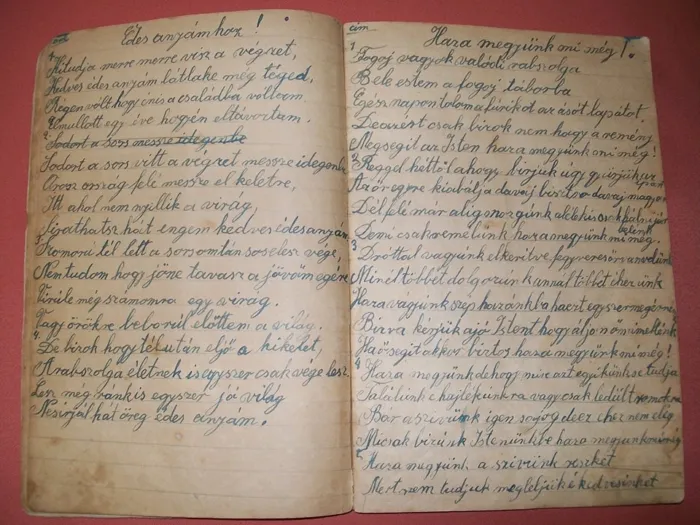 Édes anyámhoz!
1 Ki tudja merre merre visz a végzet,
Kedves édes anyám látlake még téged,
Régen volt hogy én is a családba voltam.
Elmullott egy éve hogy én eltávoztam.
2 Sodort a sors messze idegenbe
Sodort a sors vitt a végzet messze idegenbe
Orosz ország felé messze el keletre,
Itt ahol nem nyíllik a virág,
Sirathatsz hát engem kedves édes anyám.
3 Szomorú tél lett a sorsom tán sose lesz vége,
Nem tudom hogy jöne tavasz a jövöm egére
Virúle még számomra egy virág.
Vagy örökre beborúl előttem a világ.
4. De birok hogy tél után eljő a kikelet,
A rabszolga életnek is egyszer csak vége lesz.
Lesz még ránk is egyszer jó világ
Ne sírjál hat öreg édes anyám.
cím.
Haza megyünk mi még!
1 Fogoj vagyok valódi rabszolga
Bele estem a fogoj táborba
Egész napon tolom a fúrikot az ásót lapátot
De azért csak birok nem hagy a remény
Megsegit az Isten haza megyünk mi még!
2 Reggel héttől ahogy birjuk úgy gyűrjük az
Az öregre kiabálja davaj bisztro davaj magyar
Dél felé már alig mozgúnk alélekis csak
belénk
Semi csak remélünk haza megyünk mi még.
3. Dróttal vagyunk elkeritve fegyveres őr van velünk
Minél többet dolgozunk annal többet éhezünk
Haza vagyunk szép hazánkba ha ezt egyszer megérnénk
Bizva kérjük a jó Istent hogy aljon mi mellénk
Ha ő segit akkor biztos haza megyünk mi még!
4 Haza megyünk de hogy mire azt egyikünk se tudja
Találunk e hajlékunkra vagy csak ledűlt romokra
Bár a szivünk igen sajog de ez éhez nem elég
Mi csak bizunk Istenünkbe haza megyünk mi még
5 Haza megyünk, a szivünk reszket
Mert nem tudjuk megleljük é kedvesinket